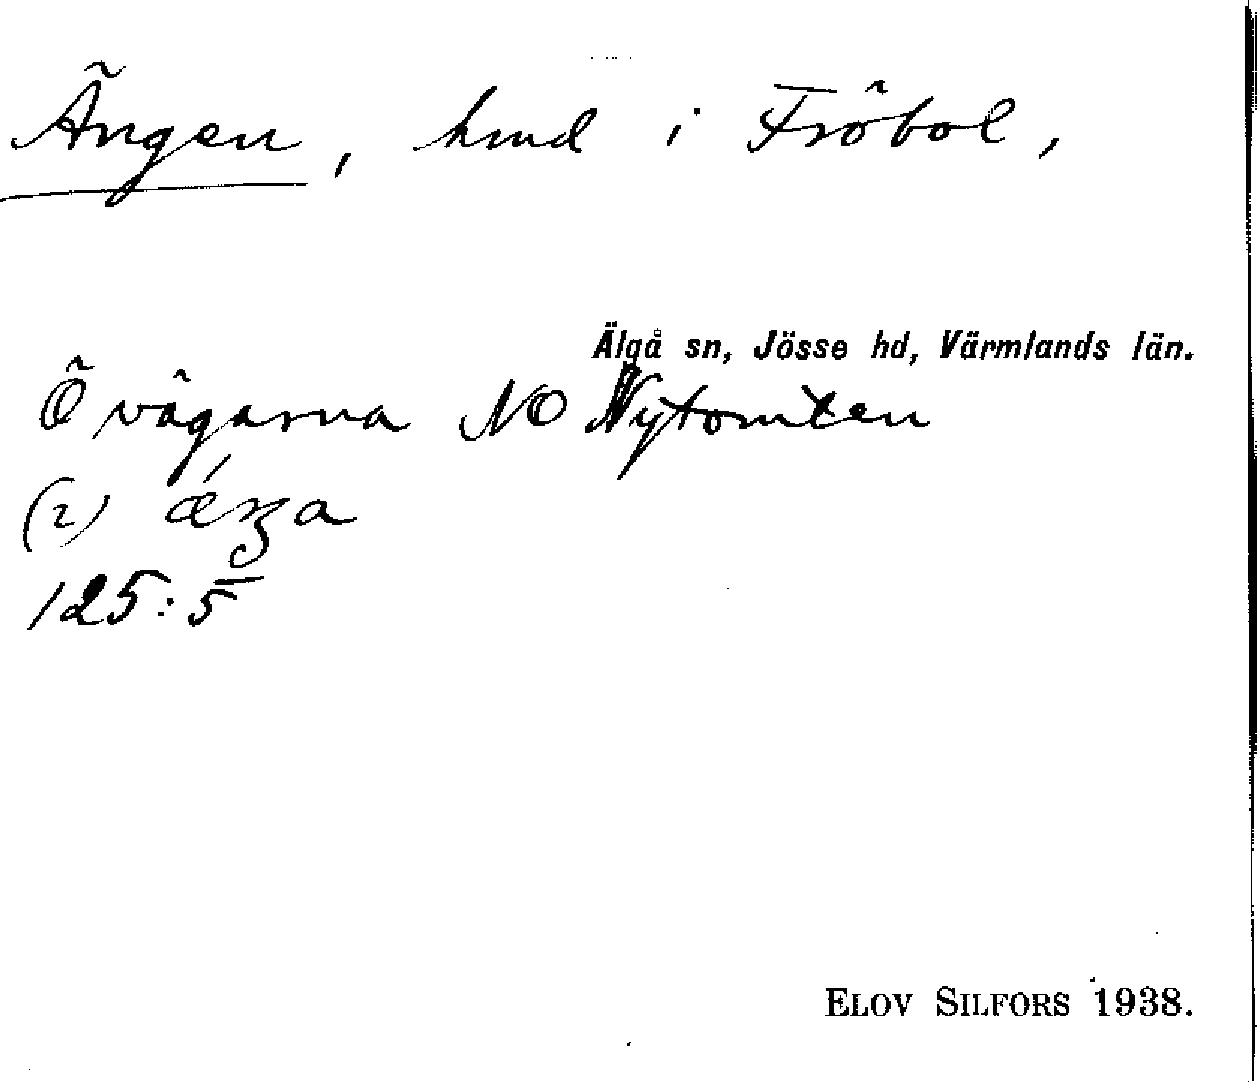 Ängen, hmd i Fröbol,
Älgå sn, Jösse hd, Värmlands län.
Ö vägarna NO Nytomten
(2)
125:5
ELOV SILFORS 1938.